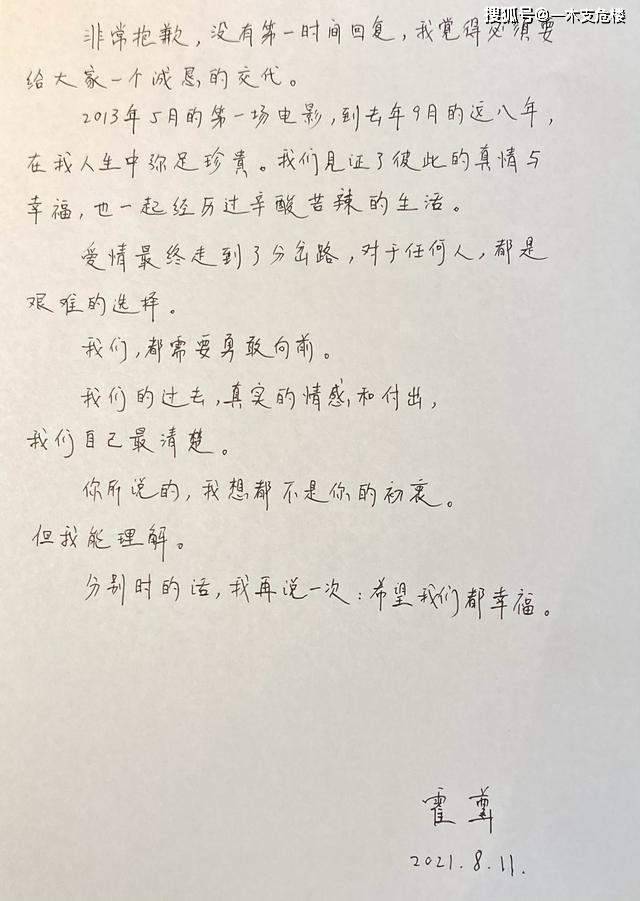 搜狐号@一木支危楼
非常抱歉，没有第一时间回复，我觉得必须要
给大家一个诚恳的交代。
2013年5月的第一场电影，到去年9月的这八年，
在我人生中弥足珍贵。我们见证了彼此的真情与
幸福，也一起经历过辛酸苦辣的生活。
爱情最终走到了分岔路，对于任何人，都是
艰难的选择。
我们，都需要勇敢向前。
我们的过去，真实的情感和付出，
我们自己最清楚。
你所说的，我想都不是你的初衷。
但我能理解。
分别时的话，我再说一次：希望我们都幸福。
霍尊
2021.8.11.